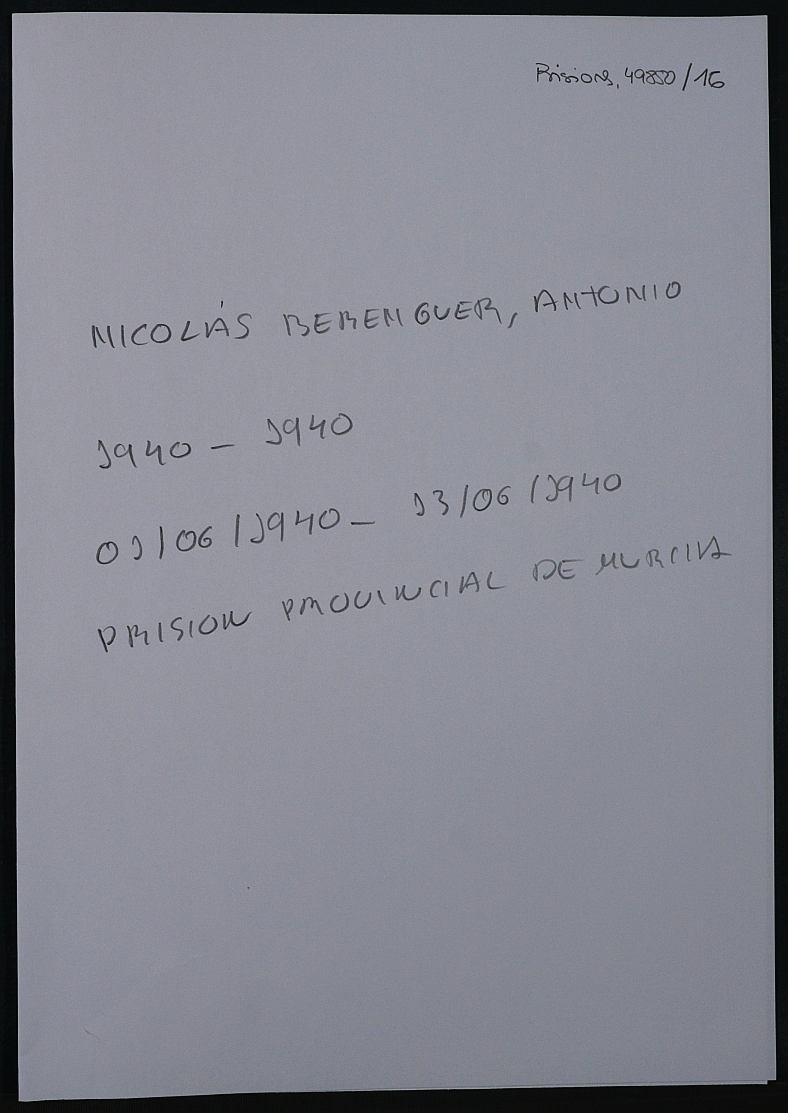 Prisions, 49850/16
NICOLÁS BERENGUER, ANTONIO
1940 - 1940
01/06/1940 - 13/06/1940
PRISION PROVINCIAL DE MURCIA